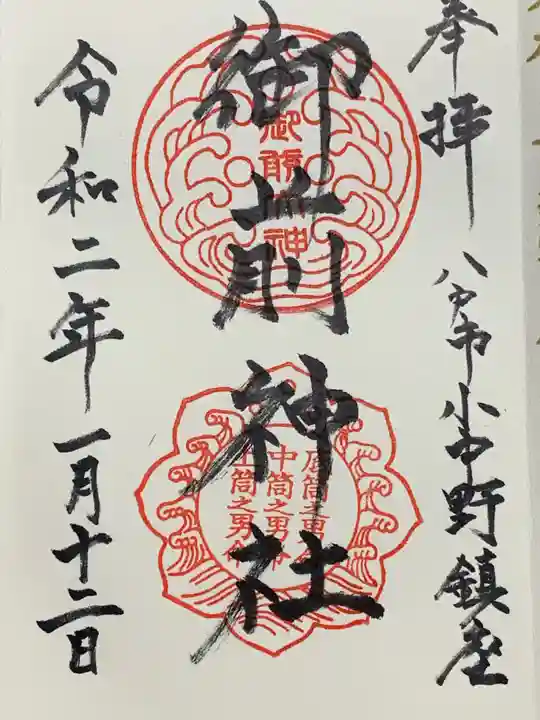 奉拝
八戸市小中野鎮座
御前神社
御前大神
底筒之男命
中筒之男命
上筒之男命
令和二年一月十二日